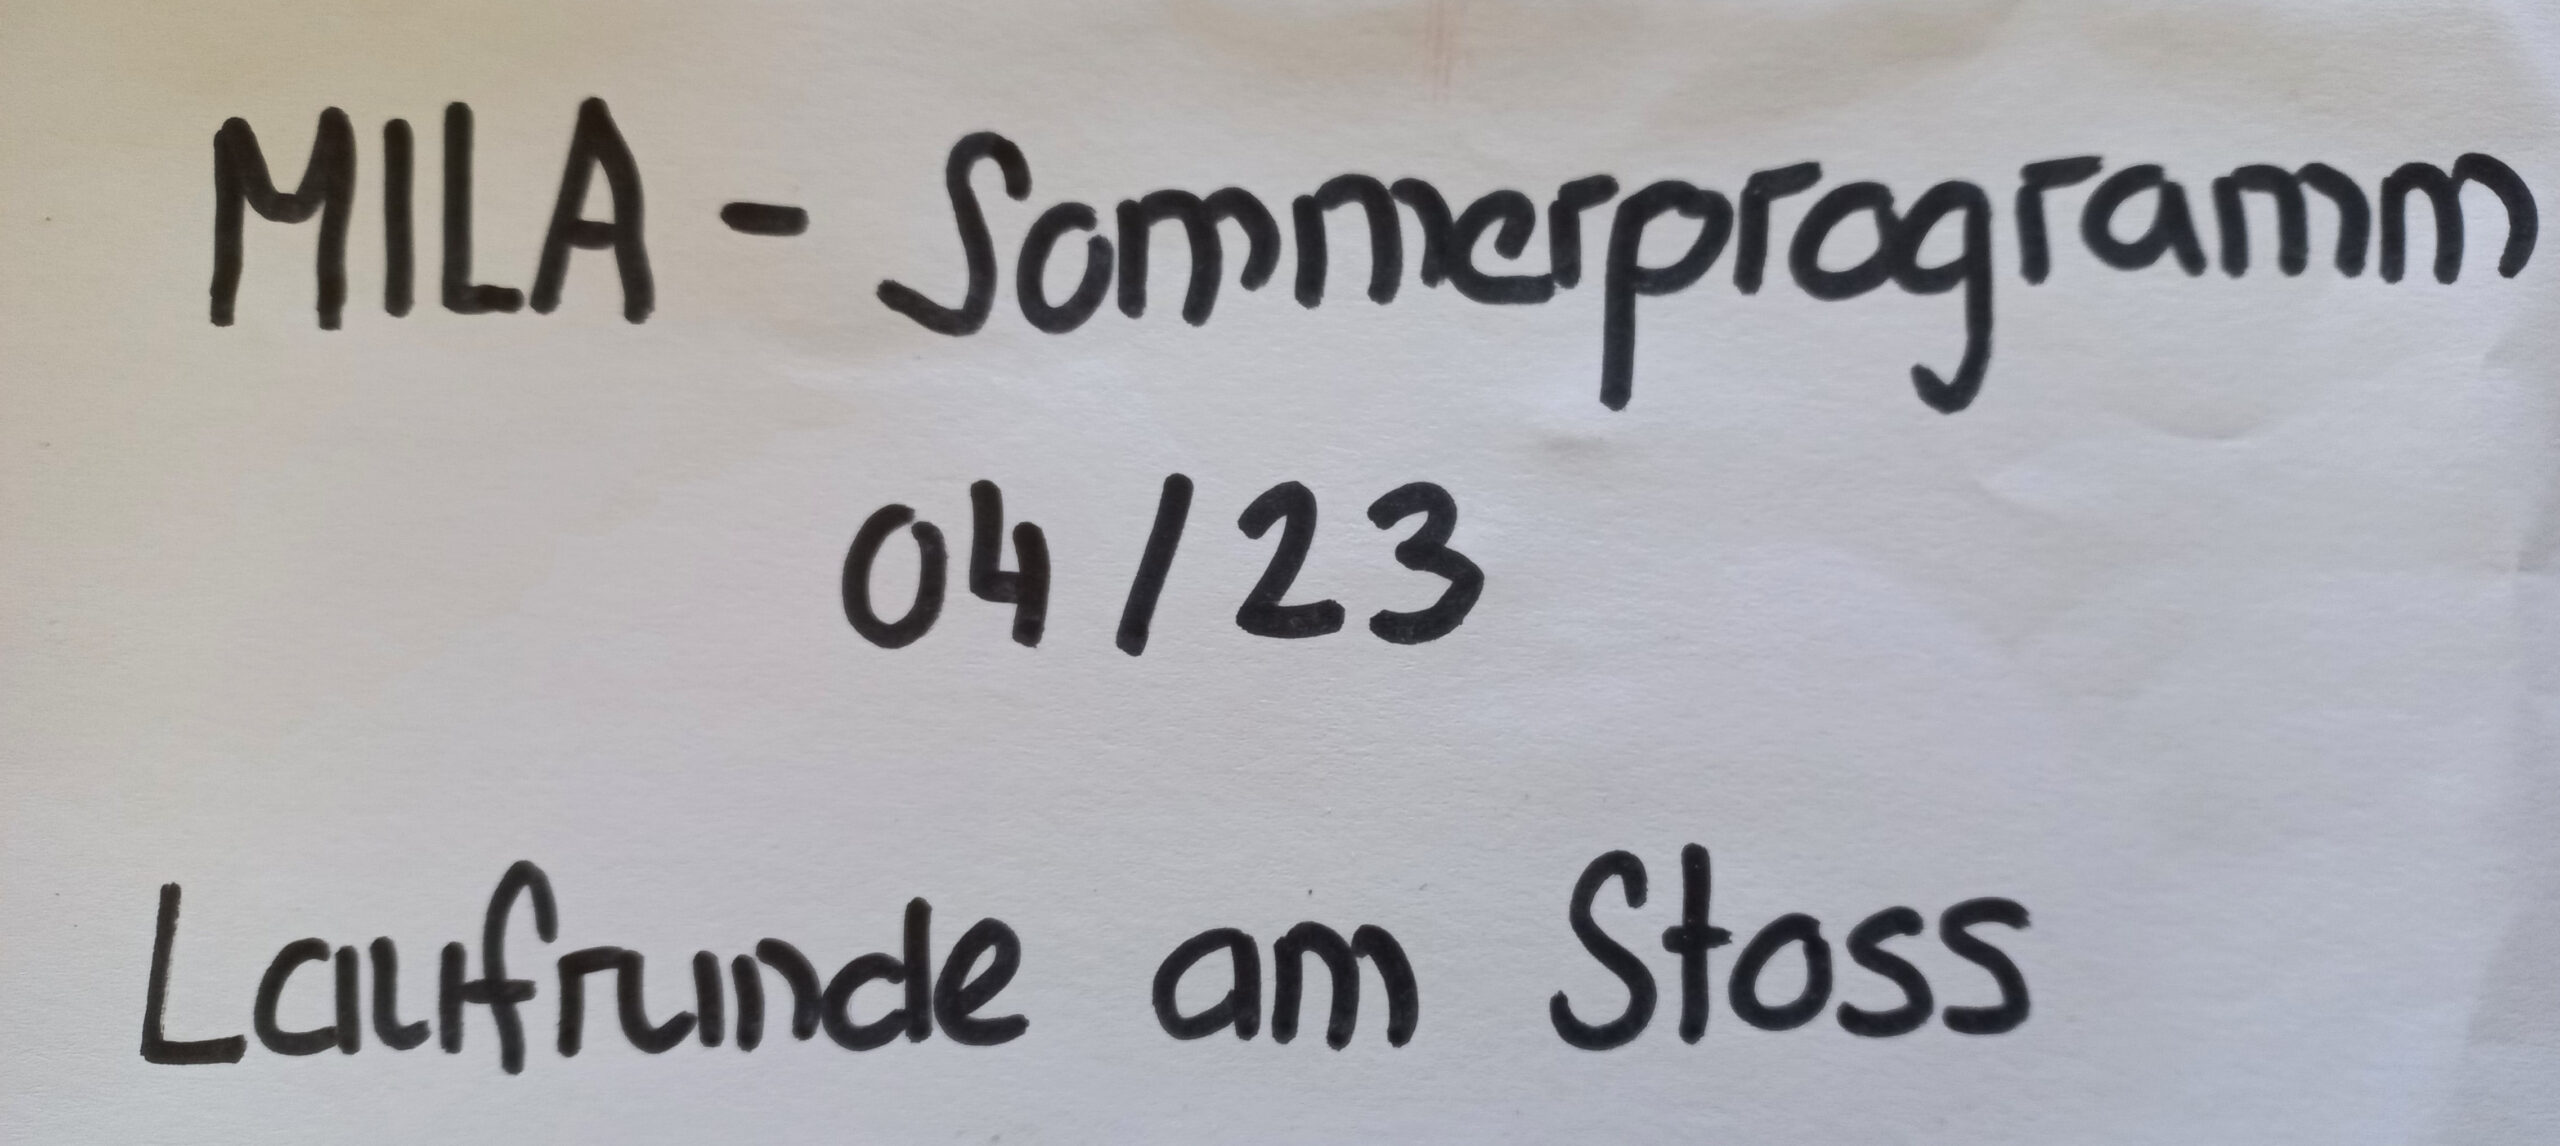 MILA - Sommerprogramm
04/23
Laufrunde am Stoss